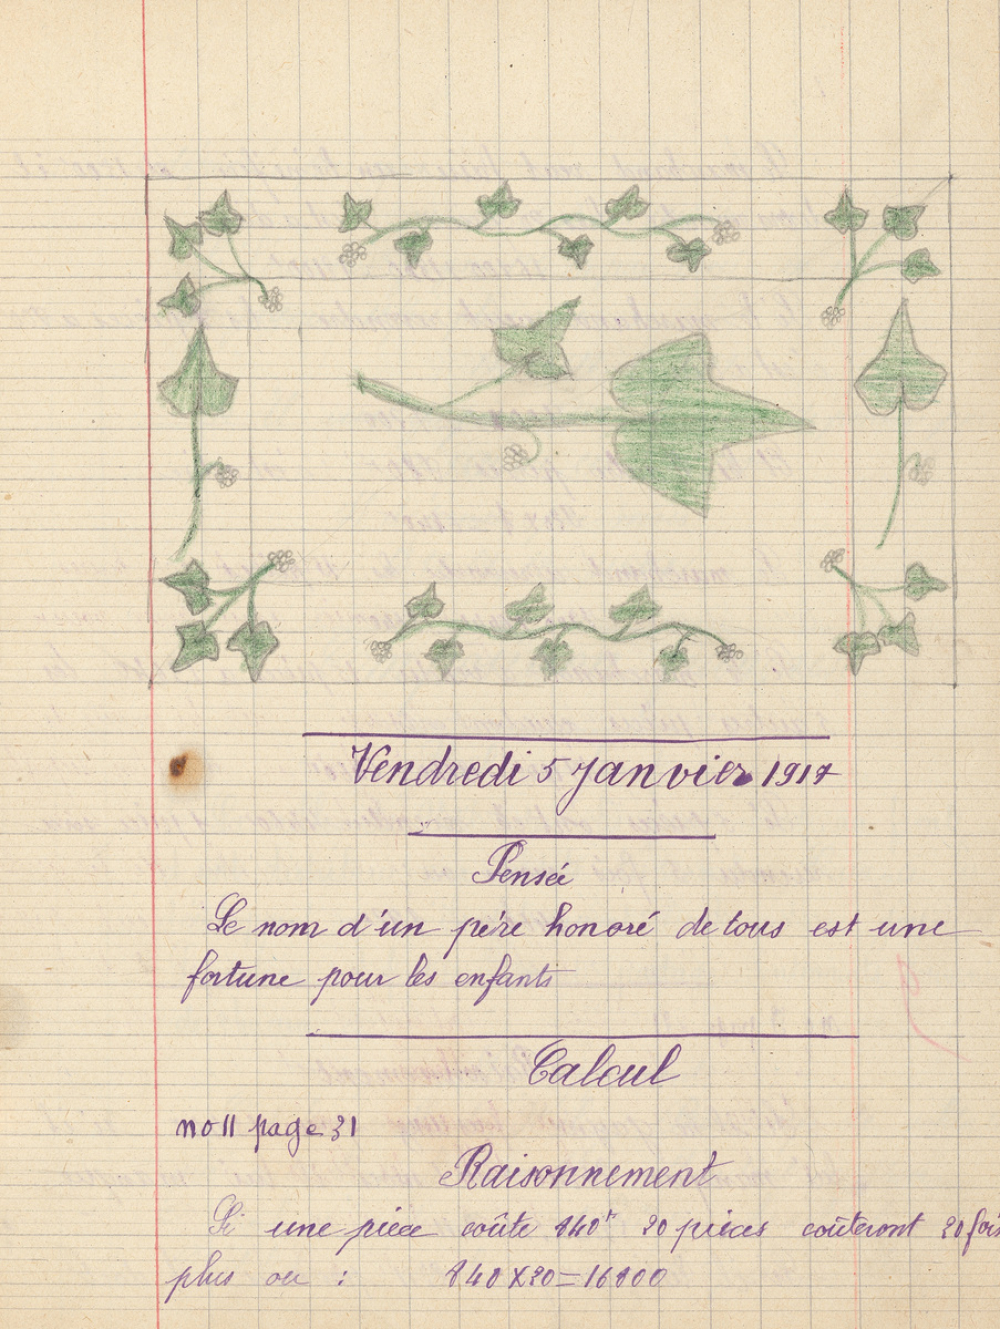 Vendredi 5 Janvier 1917
Pensée
Le nom d'un père honoré de tous est une
fortune pour les enfants
Calcul
no 11 page 31
Raisonnement
Si une pièce coûte 840f 20 pièces coûteront 20 fois
plus ou : 840 X 20 = 16800